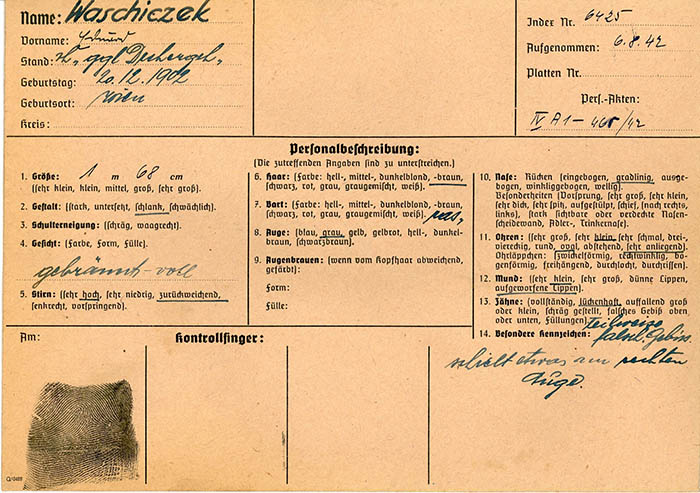 Name: Waschiczek
Vorname: Eduard
Stand: "ggl
Geburtstag: 20.12.1902
Geburtsort: Wien
Kreis:
Index Nr. 6425
Aufgenommen: 6.8.42
Platten Nr.
Pers.-Akten:
IV A1 - 465/42
Personalbeschreibung:
(Die zutreffenden Angaben sind zu unterstreichen.)
1. Größe: 1 m 68 cm
(sehr klein, klein, mittel, groß, sehr groß).
2. Gestalt: (stark, untersetzt, schlank, schwächlich).
3. Schulterneigung: (schräg, waagrecht).
4. Gesicht: (Farbe, Form, Fülle).
gebräunt - voll
5. Stirn: (sehr hoch, sehr niedrig, zurückweichend,
senkrecht, vorspringend).
6. Haar: (Farbe: hell-, mittel-, dunkelblond, -braun,
schwarz, rot, grau, graugemischt, weiß).
7. Bart: (Farbe: hell-, mittel-, dunkelblond, -braun,
schwarz, rot, grau, graugemischt, weiß). ras.
8. Auge: (blau, grau, gelb, gelbrot, hell-, dunkel-
braun, schwarzbraun).
9. Augenbrauen: (wenn vom Kopfhaar abweichend,
gefärbt):
Form:
Fülle:
10. Nase: Rücken (eingebogen, gradlinig, ausge-
bogen, winkliggebogen, wellig).
Besonderheiten (Vorsprung, sehr groß, sehr klein,
sehr dick, sehr spitz, aufgestülpt, schief, (nach rechts,
links), stark sichtbare oder verdeckte Nasen-
scheidewand, Adler-, Trinkernase).
11. Ohren: (sehr groß, sehr klein, sehr schmal, drei-
vierreckig, rund, oval, abstehend, sehr anliegend).
Ohrläppchen: (zwickelförmig, rechtwinklig, bo-
genförmig, freihängend, durchlocht, durchrissen).
12. Mund: (sehr klein, sehr groß, dünne Lippen,
aufgeworfene Lippen).
13. Zähne: (vollständig, lückenhaft, auffallend groß
oder klein, schräg gestellt, falsches Gebiß oben
oder unten, Füllungen) teilweise
14. Besondere Kennzeichen: falsch. Gebiss
schielt etwas am rechten
Auge.
Am:
Kontrollfinger: